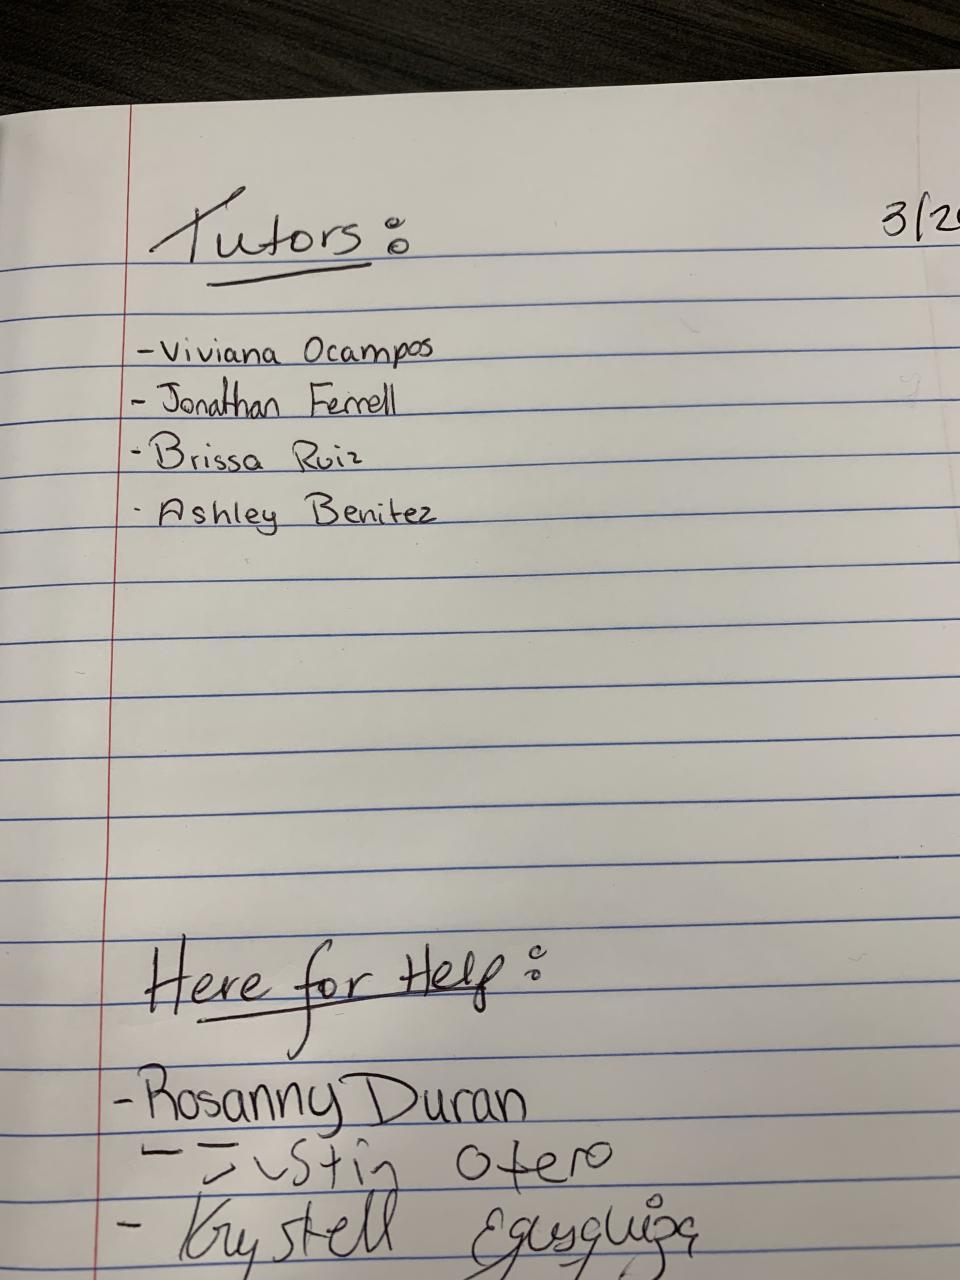 Tutors:
3/2
-Viviana Ocampos
- Jonathan Ferrell
- Brissa Ruiz
- Ashley Benitez
Here for Help:
-Rosanny Duran
- Justin Otero
- Krystell Egusquiza